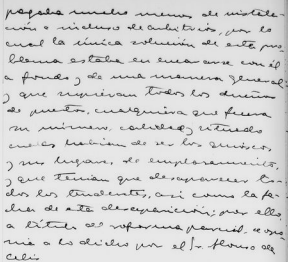 pagada mucho menos de instala-
ción e incluso de arbitrios, por lo
cual la única solución de este pro
blema estaba en encararse con él
a fondo y de una manera general
y que supieran todos los dueños
de puestos, cualquiera que fuera
su número, calidad y situado
habian de ser los quioscos
y su lugar de emplazamiento,
y que tenian que desaparecer to-
dos los tenderetes, asi como la fe-
cha de esta desaparición; por ello,
a título de reforma parcial, se opo-
nia a lo dicho por el Sr. Alonso de
Celis